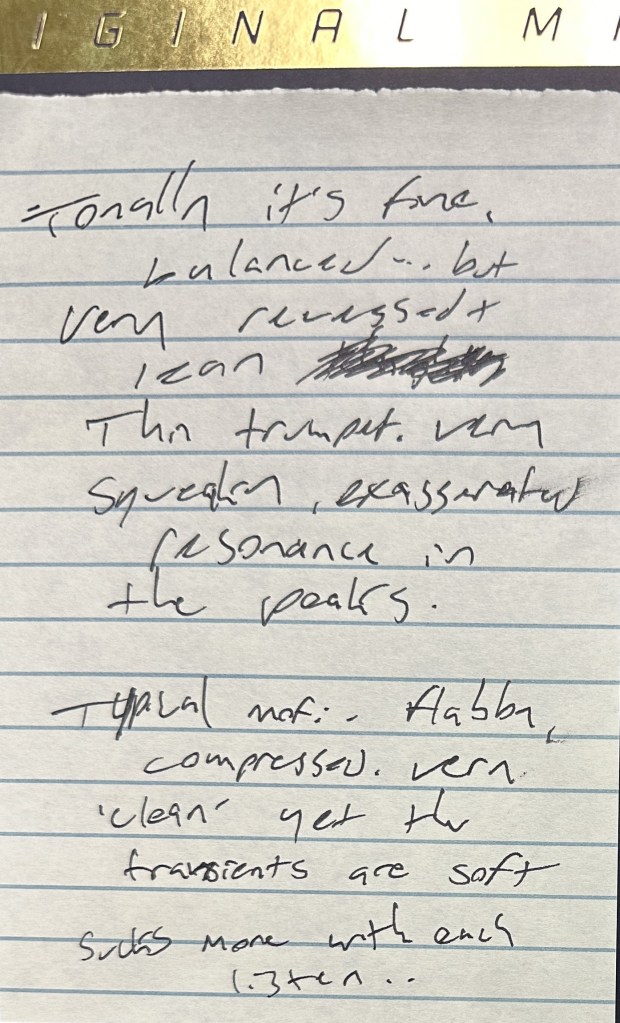 IGINAL M
Tonally it's fine,
balanced... but
very recessed +
lean
Thin trumpet. very
squeaky, exaggerated
resonance in
the peaks.
Typical mofi.. flabby,
compressed. very
'clean' yet the
transients are soft
sucks more with each
listen..